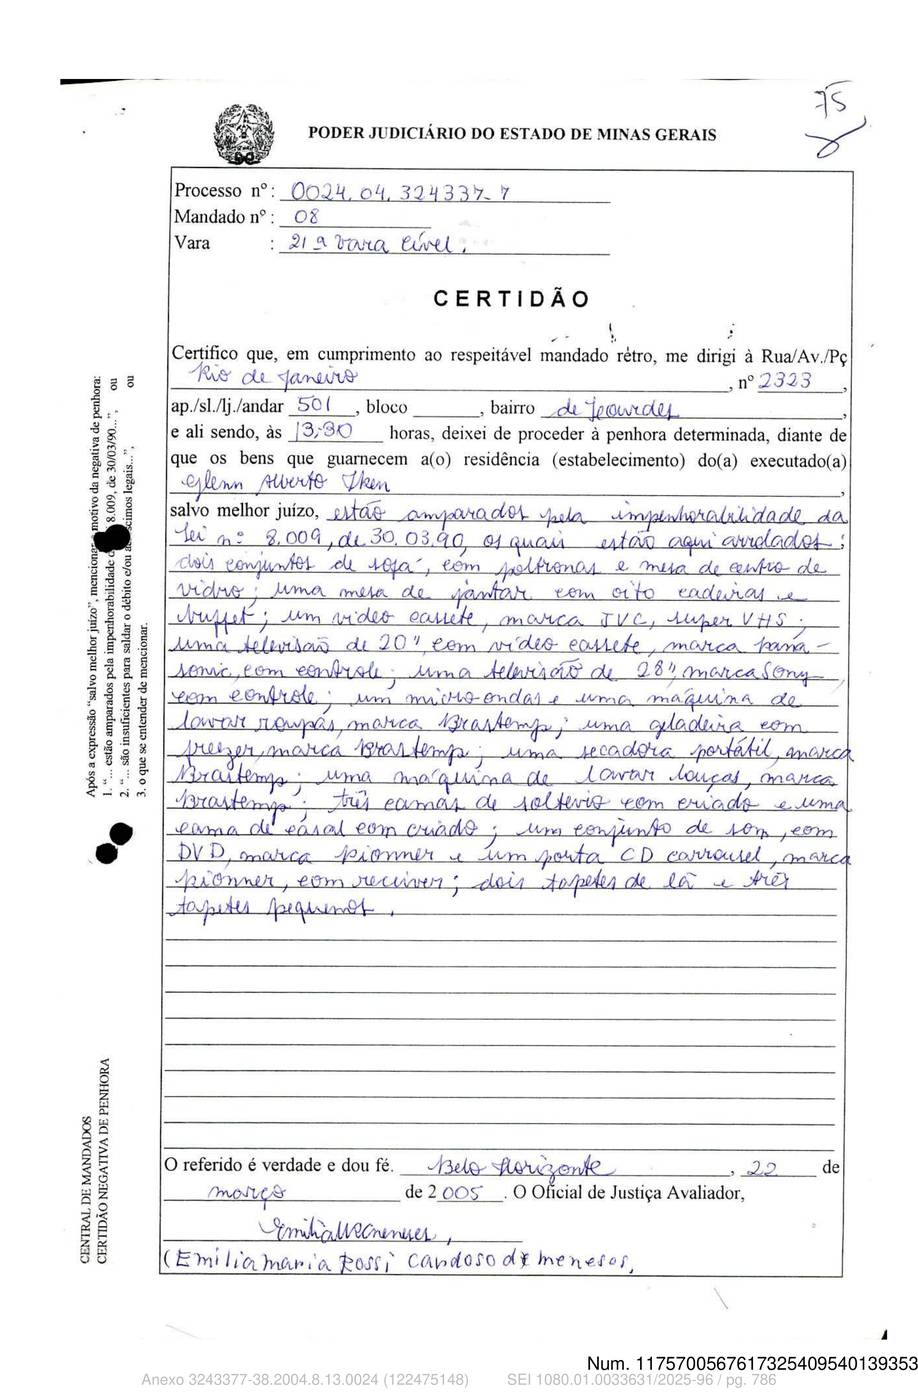 75
PODER JUDICIÁRIO DO ESTADO DE MINAS GERAIS
Processo nº: 0024.04.324337-7
Mandado nº: 08
Vara : 21ª Vara Cível.
CERTIDÃO
Certifico que, em cumprimento ao respeitável mandado retro, me dirigi à Rua/Av./Pç
Rio de Janeiro, nº 2323,
ap./sl./lj./andar 501, bloco ______, bairro de Lourdes,
e ali sendo, às 13:30 horas, deixei de proceder à penhora determinada, diante de
que os bens que guarnecem a(o) residência (estabelecimento) do(a) executado(a)
Glenn Alberto Iken,
salvo melhor juízo, estão amparados pela impenhorabilidade da
Lei nº 8.009, de 30.03.90, os quais estão aqui arrolados:
dois conjuntos de sofá, com poltronas e mesa de centro de
vidro; uma mesa de jantar com oito cadeiras e
buffet; um video cassete, marca JVC, super VHS;
uma televisão de 20", com vídeo cassete, marca pana-
sonic, com controle; uma televisão de 28", marca Sony
com controle; um micro ondas e uma máquina de
lavar roupas, marca Brastemp; uma geladeira com
freezer, marca Brastemp; uma secadora portátil, marca
Brastemp; uma máquina de lavar louças, marca
Brastemp; três camas de solteiro com criado e uma
cama de casal com criado; um conjunto de som, com
DVD, marca pionner e um porta CD carrousel, marca
pionner, com receiver; dois tapetes de lã e três
tapetes pequenos.
O referido é verdade e dou fé. Belo Horizonte, 22 de
março de 2005. O Oficial de Justiça Avaliador,
(Emilia maria Rossi Cardoso de meneses,
Após a expressão "salvo melhor juízo", mencionar o motivo da negativa de penhora:
1. "... estão amparados pela impenhorabilidade 8.009, de 30/03/90...", ou
2. "... são insuficientes para saldar o débito e/ou acréscimos legais...", ou
3. o que se entender de mencionar.
CENTRAL DE MANDADOS
CERTIDÃO NEGATIVA DE PENHORA
Num. 11757005676173254095401393­53
Anexo 3243377-38.2004.8.13.0024 (122475148) SEI 1080.01.0033631/2025-96 / pg. 786